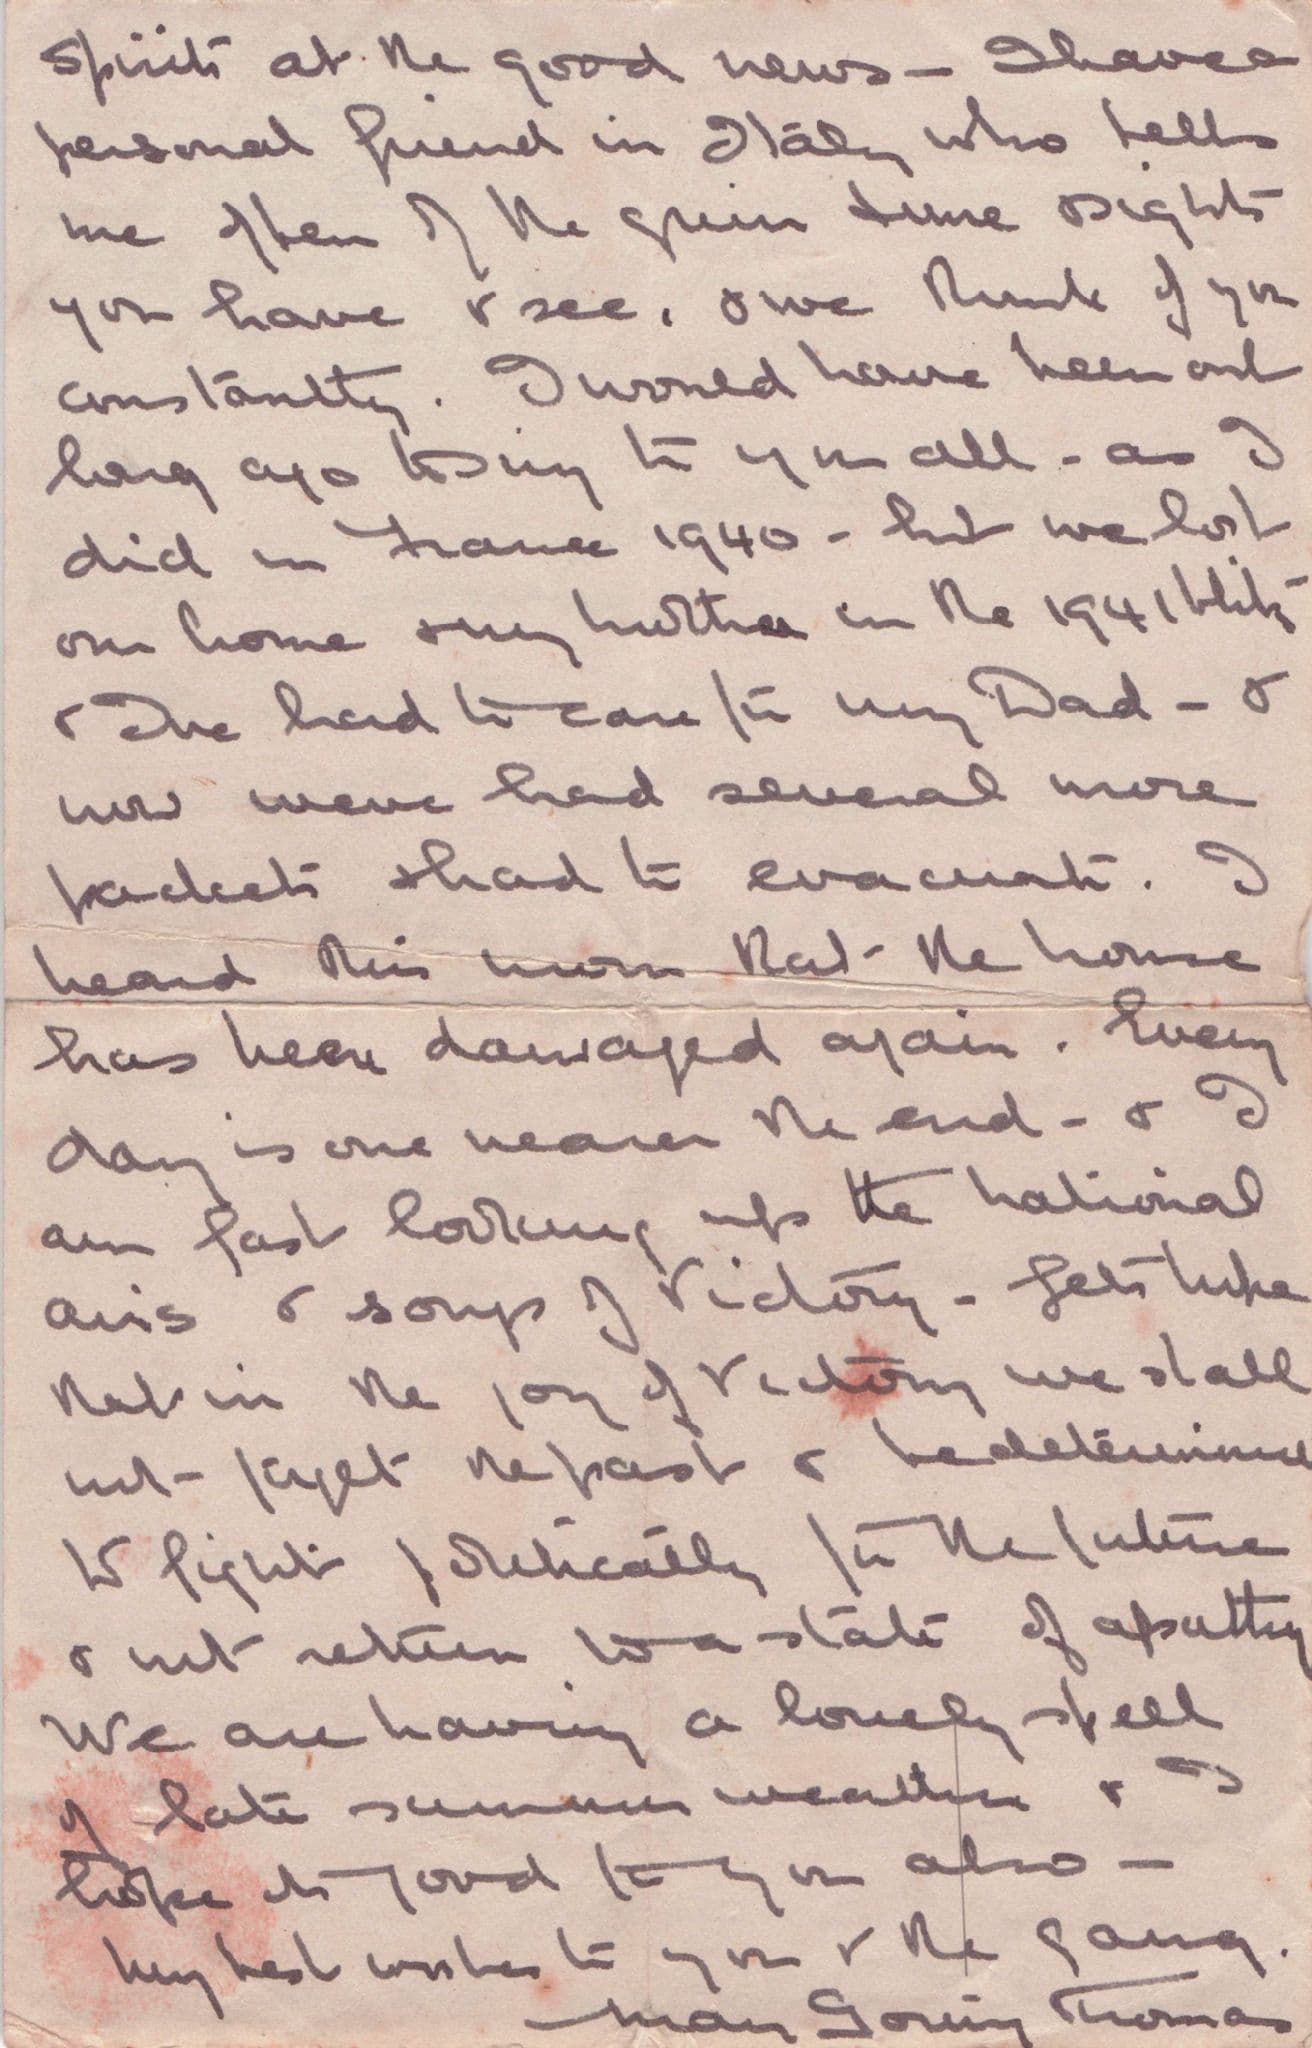 spirits at the good news – I have a
personal friend in Italy who tells
me often of the grim time & sights
you have & see, & we think of you
constantly. I would have been out
long ago to sing to you all – as I
did in France 1940 – but we lost
our home & my mother in the 1941 blitz
& I've had to care for my Dad – &
now we've had several more
packets & had to evacuate. I
heard this morn that the house
has been damaged again. Every
day is one nearer the end – & I
am fast looking up the national
airs & songs of Victory – Let's hope
that in the joy of Victory we shall
not forget the past & be determined
to fight politically for the future
& not return to a state of apathy
We are having a lovely spell
of late summer weather & I
hope it's good for you also –
My best wishes to you & the gang.
May Thomas